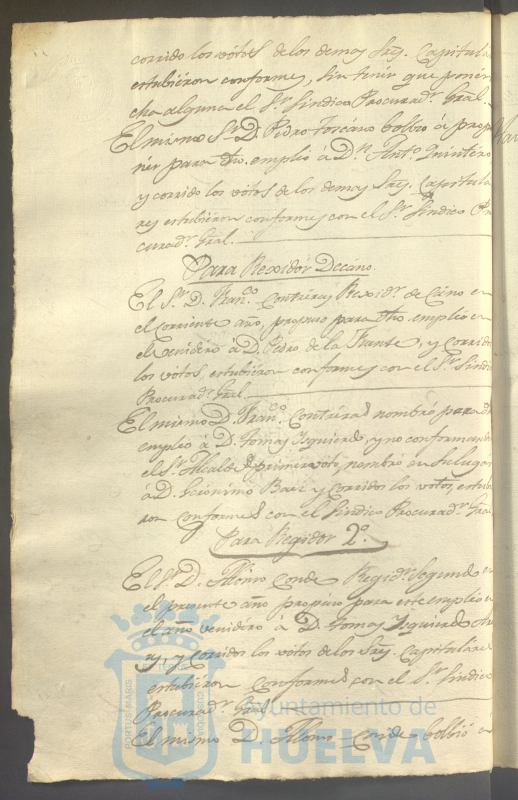 corrido los votos de los demas Sres. Capitula
estubieron conformes, sin tener que poner
cha alguna el Sr. Sindico Procuradr. Gral.
El mismo Sr. D. Pedro Toscano bolbio á propo
ner para dho. empleo á Dn. Anto. Quintero
y corrido los votos de los demas Sres. Capitula
res estubieron conformes con el Sr. Sindico Pro
curadr. Gral.
Para Rexidor Decano.
El Sr. D. Franco. Contreras Rexidr. de Cano en
el corriente año, propuso para dho. empleo en
el venidero á D. Pedro de la Fuente, y Corrido
los votos estubieron conformes con el Sr. Sindico
Procuradr. Gral.
El mismo D. Franco. Contreras nombró para dho
empleo á D. Tomas Izquierdo, y no conformando
el Sr. Alcalde de primer voto, nombró en su lugar
á D. Gerónimo Baez y Corridos los votos estubie
ron Conformes con el Sindico Procuradr. Gral.
Para Regidor 2º.
El Sr. D. Alonso Conde Regidr. Segundo en
el presente año propuso para este empleo en
el año venidero á D. Tomas Izquierdo
y Corridos los votos de los Sres. Capitulares
estubieron Conformes con el Sr. Sindico
Procuradr. Gral.
El mismo D. Alonso Conde bolbió
PORTUS MARIS
Ayuntamiento de
HUELVA